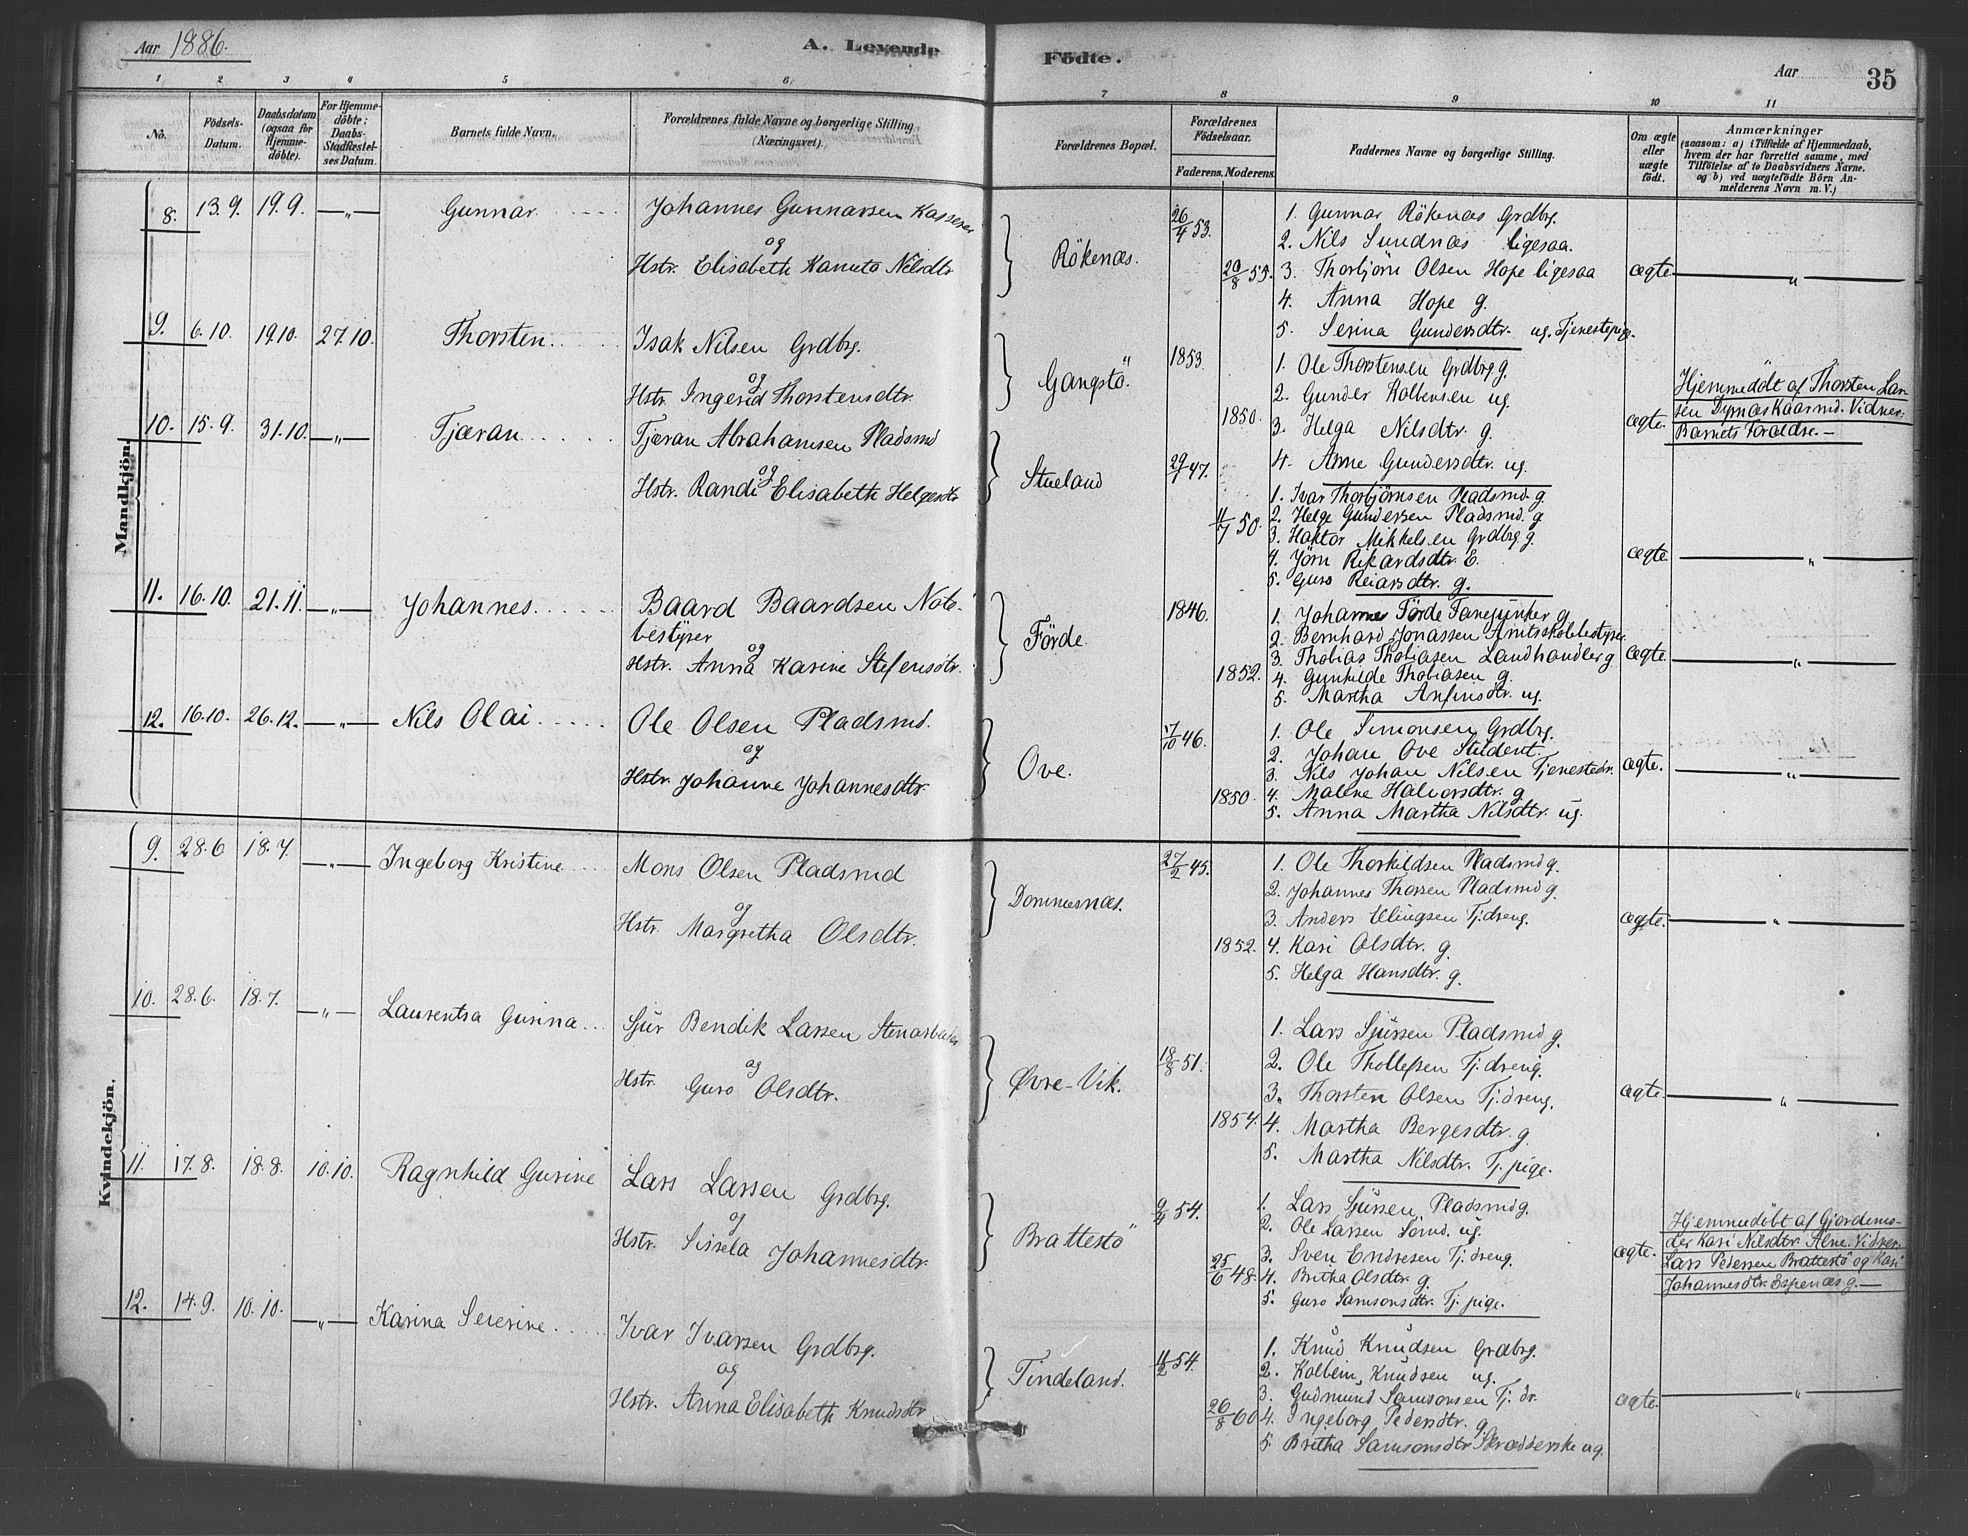 Aar 1886.
A. Levende Födte.
Aar
35
1 2 3 4 5 6 7 8 9 10 11
No.
Födsels-
Datum.
Daabsdatum
(ogsaa for
Hjemme-
döbte).
For Hjemme-
döbte:
Daabs-
Stadfæstel-
ses Datum.
Barnets fulde Navn.
Forældrenes fulde Navne og borgerlige Stilling
(Næringsvei).
Forældrenes Bopæl.
Forældrenes
Födselsaar.
Faderens. Moderens.
Faddernes Navne og borgerlige Stilling.
Om ægte
eller
uægte
födt.
Anmærkninger
(saasom: a) i Tilfælde af Hjemmedaab,
hvem der har forrettet samme, med
Tilföielse af to Daabsvidners Navne.
og b) ved uægtefödte Börn An-
melderens Navn m. V.)
Mandkjön.
8. 13.9. 19.9. — " — Gunnar
Johannes Gunnarsen Kasserer
og
Hstr. Elisabeth Kanuta Nilsdtr
Rökenæs.
26/4 53.
20/8 55.
1. Gunnar Rökenæs Grdbrg.
2. Nils Sundnæs ligesaa.
3. Thorbjörn Olsen Hope ligesaa
4. Anna Hope g.
5. Serina Gundersdtr. ug. Tjenestepige.
ægte — " —
9. 6.10. 19.10. 27.10. Thorsten
Isak Nilsen Grdbrg.
og
Hstr. Ingerid Thorstensdtr.
Gangstö.
1853.
1850.
1. Ole Thorstensen Grdbrg g.
2. Gunder Kolbensen ug.
3. Helga Nilsdtr. g.
4. Anne Gundersdtr. ug.
ægte.
Hjemmedöbt af Thorsten Lar-
sen Dymæs Kaarmd. Vidner:
Barnets Forældre. —
10. 15.9. 31.10. — " — Tjæran
Tjæran Abrahamsen Pladsmd
og
Hstr. Randi Elisabeth Helgesdtr
Stueland
29/7 47.
11/7 50.
1. Ivar Thorbjörnsen Pladsmd. g.
2. Helge Gundersen Pladsmd. g
3. Haktor Mikkelsen Grdbrg g.
4. Jörn Rikardsdtr. E.
5. Guro Reiarsdtr. g.
ægte — " —
11. 16.10. 21.11. — " — Johannes.
Baard Baardsen Notb-
bestyrer
og
Hstr. Anna Karine Stefensdtr.
Förde.
1846.
1852.
1. Johannes Förde Fanejunker g
2. Bernhard Jonassen Amtsskolebestyrer
3. Thobias Thobiasen Landhandler g
4. Gunhilde Thobiasen g.
5. Martha Anfinsdtr. ug.
ægte. — " —
12. 16.10. 26.12. — " — Nils Olai
Ole Olsen Pladsmd.
og
Hstr. Johanne Johannesdtr.
Ove.
17/10 46.
1850.
1. Ole Simonsen Grdbrg.
2. Johan Ove Student.
3. Nils Johan Nilsen Tjenestedr.
4. Malene Halvorsdtr. g
5. Anna Martha Nilsdtr. ug.
ægte. — " —
Kvindekjön.
9. 28.6 18.7. — " — Ingeborg Kristine
Mons Olsen Pladsmd
og
Hstr. Margretha Olsdtr.
Dommesnæs.
27/2 45.
1852.
1. Ole Thorkildsen Pladsmd g.
2. Johannes Thorsen Pladsmd g.
3. Anders Ellingsen Tj. dreng.
4. Kari Olsdtr. g.
5. Helga Hansdtr. g.
ægte. — " —
10. 28.6. 18.7. — " — Laurentsa Gurina
Sjur Bendik Larsen Stenarbeider
og
Hstr. Guro Olsdtr.
Övre-Vik.
18/8 51.
1854.
1. Lars Sjursen Pladsmd g.
2. Ole Thollefsen Tj. dreng.
3. Thorsten Olsen Tj. dreng.
4. Martha Bergesdtr. g
5. Martha Nilsdtr. Tj. pige.
ægte. — " —
11. 17.8. 18.8. 10.10. Ragnhild Gurine
Lars Larsen Grdbrg.
og
Hstr. Sissela Johannesdtr.
Brattestö
9/4 54.
25/6 48.
1. Lars Sjursen Pladsmd g.
2. Ole Larsen Sömd. ug.
3. Sven Endresen Tj. dreng.
4. Britha Olsdtr. g
5. Guro Samsonsdtr. Tj. pige.
ægte.
Hjemmedöbt af Gjordemo-
der Kari Nilsdtr. Alne. Vidner:
Lars Pedersen Brattestö og Kari
Johannesdtr. Espenæs g. —
12. 14.9. 10.10. — " — Karina Severine
Ivar Ivarsen Grdbrg.
og
Hstr. Anna Elisabeth Knudsdtr
Tindeland.
11/2 54.
26/8 60
1. Knud Knudsen Grdbrg.
2. Kolbein Knudsen ug.
3. Gudmund Samsonsen Tj. dr.
4. Ingeborg Pedersdtr. g
5. Britha Samsonsdtr. Skrædderske ug.
ægte. — " —